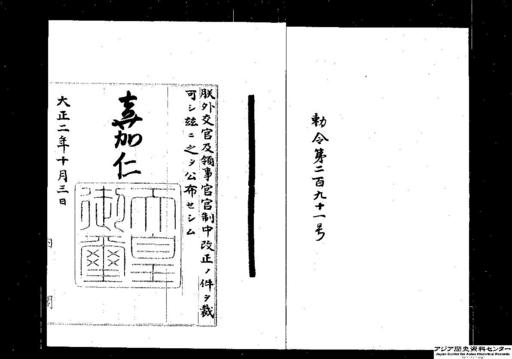 勅令第二百九十一号
朕外交官及領事官官制中改正ノ件ヲ裁
可シ玆ニ之ヲ公布セシム
嘉仁
天皇
御璽
大正二年十月三日
内閣
アジア歴史資料センター
Japan Center for Asian Historical Records